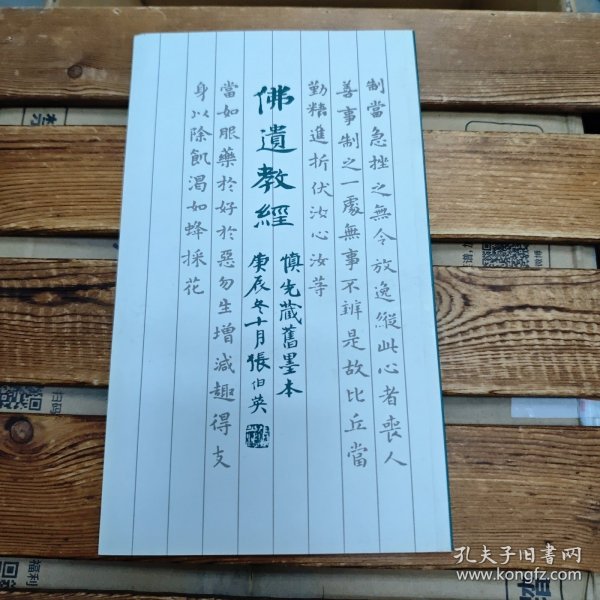 制當急挫之無令放逸縱此心者喪人
善事制之一處無事不辨是故比丘當
勤精進折伏汝心汝等
佛遺教經
慎先藏舊墨本
庚辰冬十月張伯英
當如服藥於好於惡勿生增減趣得支
身以除飢渴如蜂採花
孔夫子旧书网
www.kongfz.com